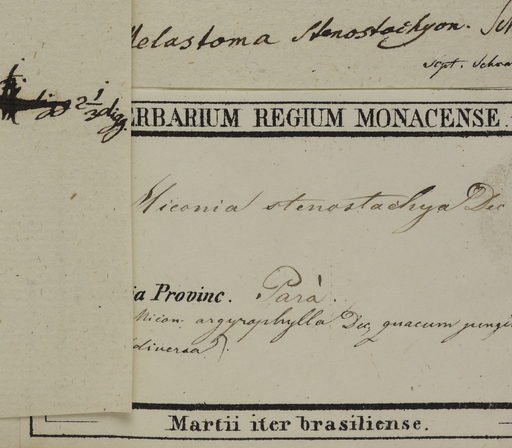 Melastoma stenostachyon. Sch
scpt. Schra
2 1/3 digg.
ERBARIUM REGIUM MONACENSE.
Miconia stenostachya Dec
ia Provinc. Parà.
Micon. argyrophylla Dec, quacum jungi
diversa?).
Martii iter brasiliense.